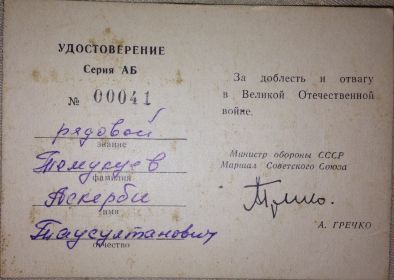 УДОСТОВЕРЕНИЕ
Серия АБ
№ 00041
рядовой
звание
Томукуев
фамилия
Аскерби
имя
Таусултанович
отчество
За доблесть и отвагу
в Великой Отечественной
войне.
Министр обороны СССР
Маршал Советского Союза
А. ГРЕЧКО